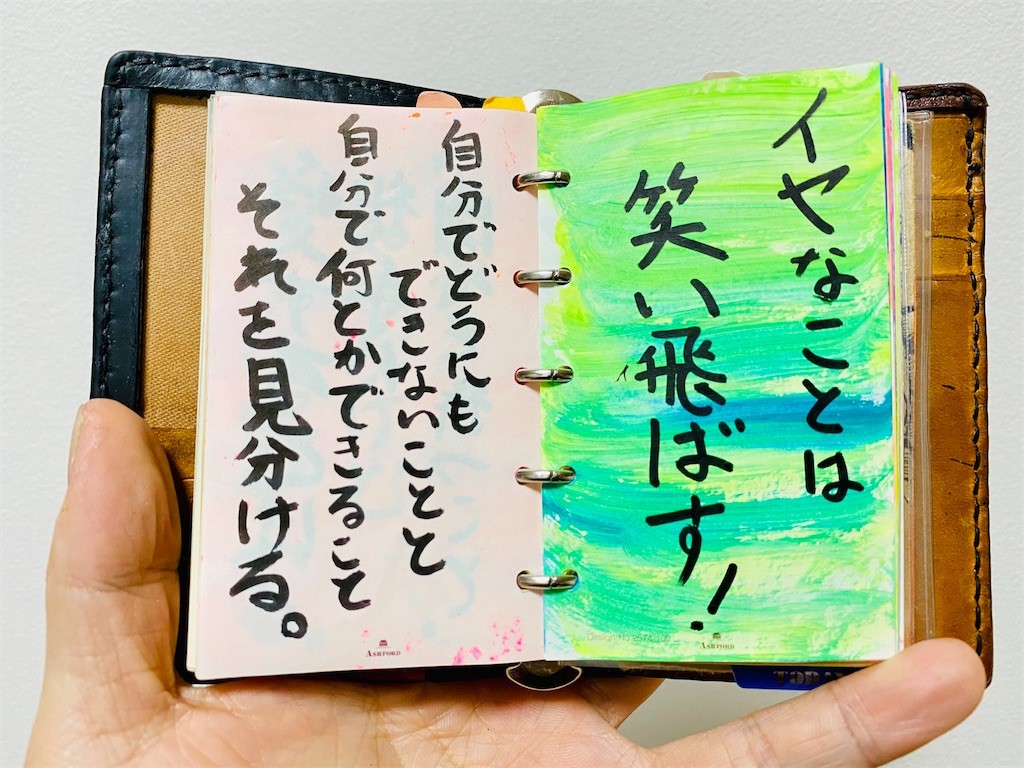 イヤなことは
笑い飛ばす!
自分でどうにも
できないことと
自分で何とかできること
それを見分ける。
ASHFORD
ASHFORD
TODAY